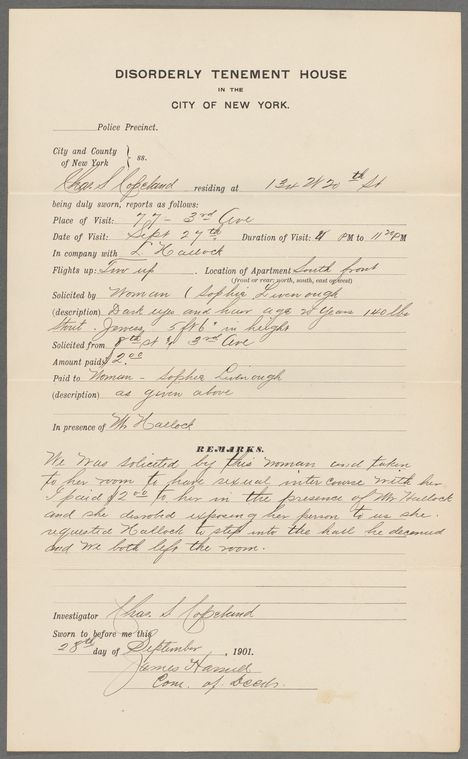 DISORDERLY TENEMENT HOUSE
IN THE
CITY OF NEW YORK.
Police Precinct.
City and County
of New York } ss.
Chas. S. Copeland residing at 134 W 20th St
being duly sworn, reports as follows:
Place of Visit: 77 - 3rd Ave
Date of Visit: Sept 27th Duration of Visit: 11 PM to 11 20 PM
In company with L Hallock
Flights up: Two up. Location of Apartment South front
(front or rear: north, south, east or west)
Solicited by Woman (Sophia
(description) Dark eyes and hair age 24 years 140 lbs
Stout. 5 ft 6 in height
Solicited from 8th St & 3rd Ave
Amount paid: $2.00
Paid to Woman - Sophia
(description) as given above
In presence of Mr Hallock
REMARKS.
We was solicited by this woman and taken
to her room to have sexual intercourse with her
I paid $2.00 to her in the presence of Mr Hallock
and she exposing her person to us she
requested Hallock to step into the hall he
and we both left the room.
Investigator Chas. S. Copeland
Sworn to before me this
28th day of September, 1901.
James
Com. of Deeds.